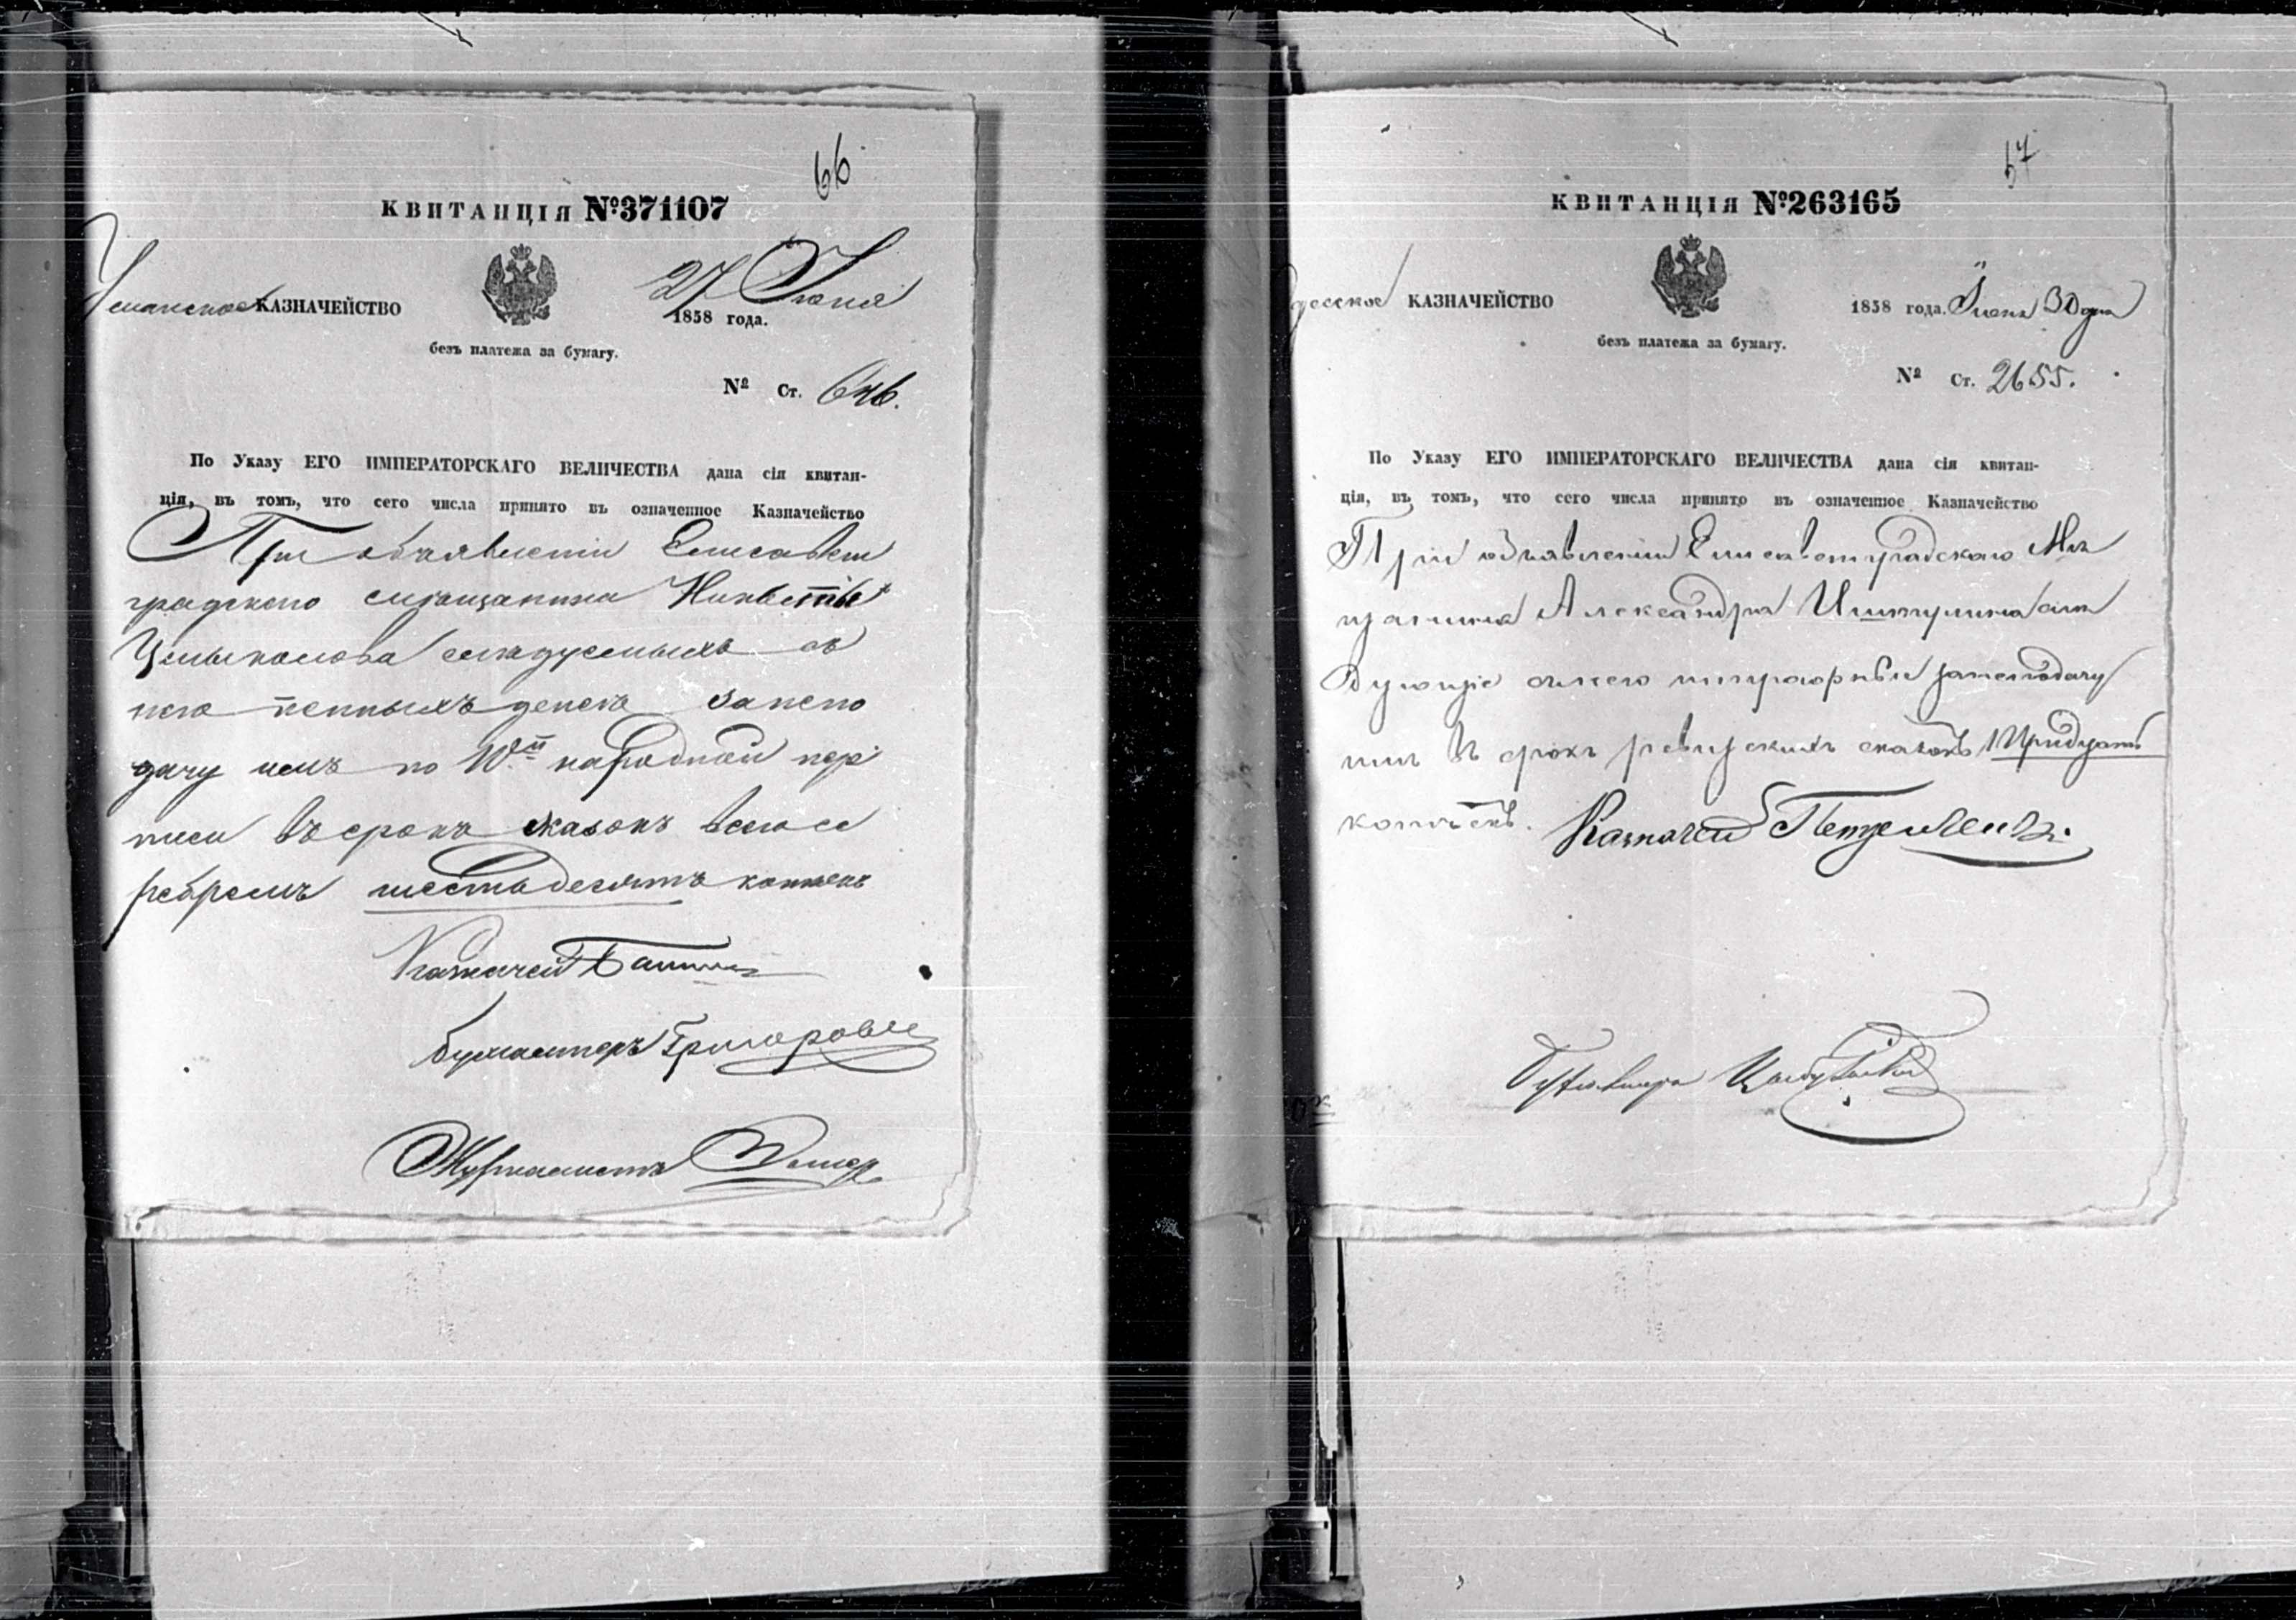 66
КВИТАНЦІЯ №371107
Уманское КАЗНАЧЕЙСТВО
27 Іюня
1858 года.
безъ платежа за бумагу.
№ Ст. 646.
По Указу ЕГО ИМПЕРАТОРСКАГО ВЕЛИЧЕСТВА дана сія квитан-
ція, въ томъ, что сего числа принято въ означенное Казначейство
При объявленіи Елисавет
градскаго мещанина
следуемыхъ съ
него пенныхъ денегъ за непо
дачу имъ по 10й народной пере
писи въ срокъ сказокъ всего се
ребромъ шестьдесятъ копѣекъ
Казначей
Бухгалтеръ Григорович
Журналистъ
57
КВИТАНЦІЯ №263165
десское КАЗНАЧЕЙСТВО
1858 года. Іюня 30 дня
безъ платежа за бумагу.
№ Ст. 2655.
По Указу ЕГО ИМПЕРАТОРСКАГО ВЕЛИЧЕСТВА дана сія квитан-
ція, въ томъ, что сего числа принято въ означенное Казначейство
При объявленіи Елисаветградскаго Мѣ
щанина Александра слѣ
дующіе съ него за неподачу
имъ въ срокъ ревизскихъ сказокъ тридцать
копѣекъ. Казначей
Бухгалтеръ